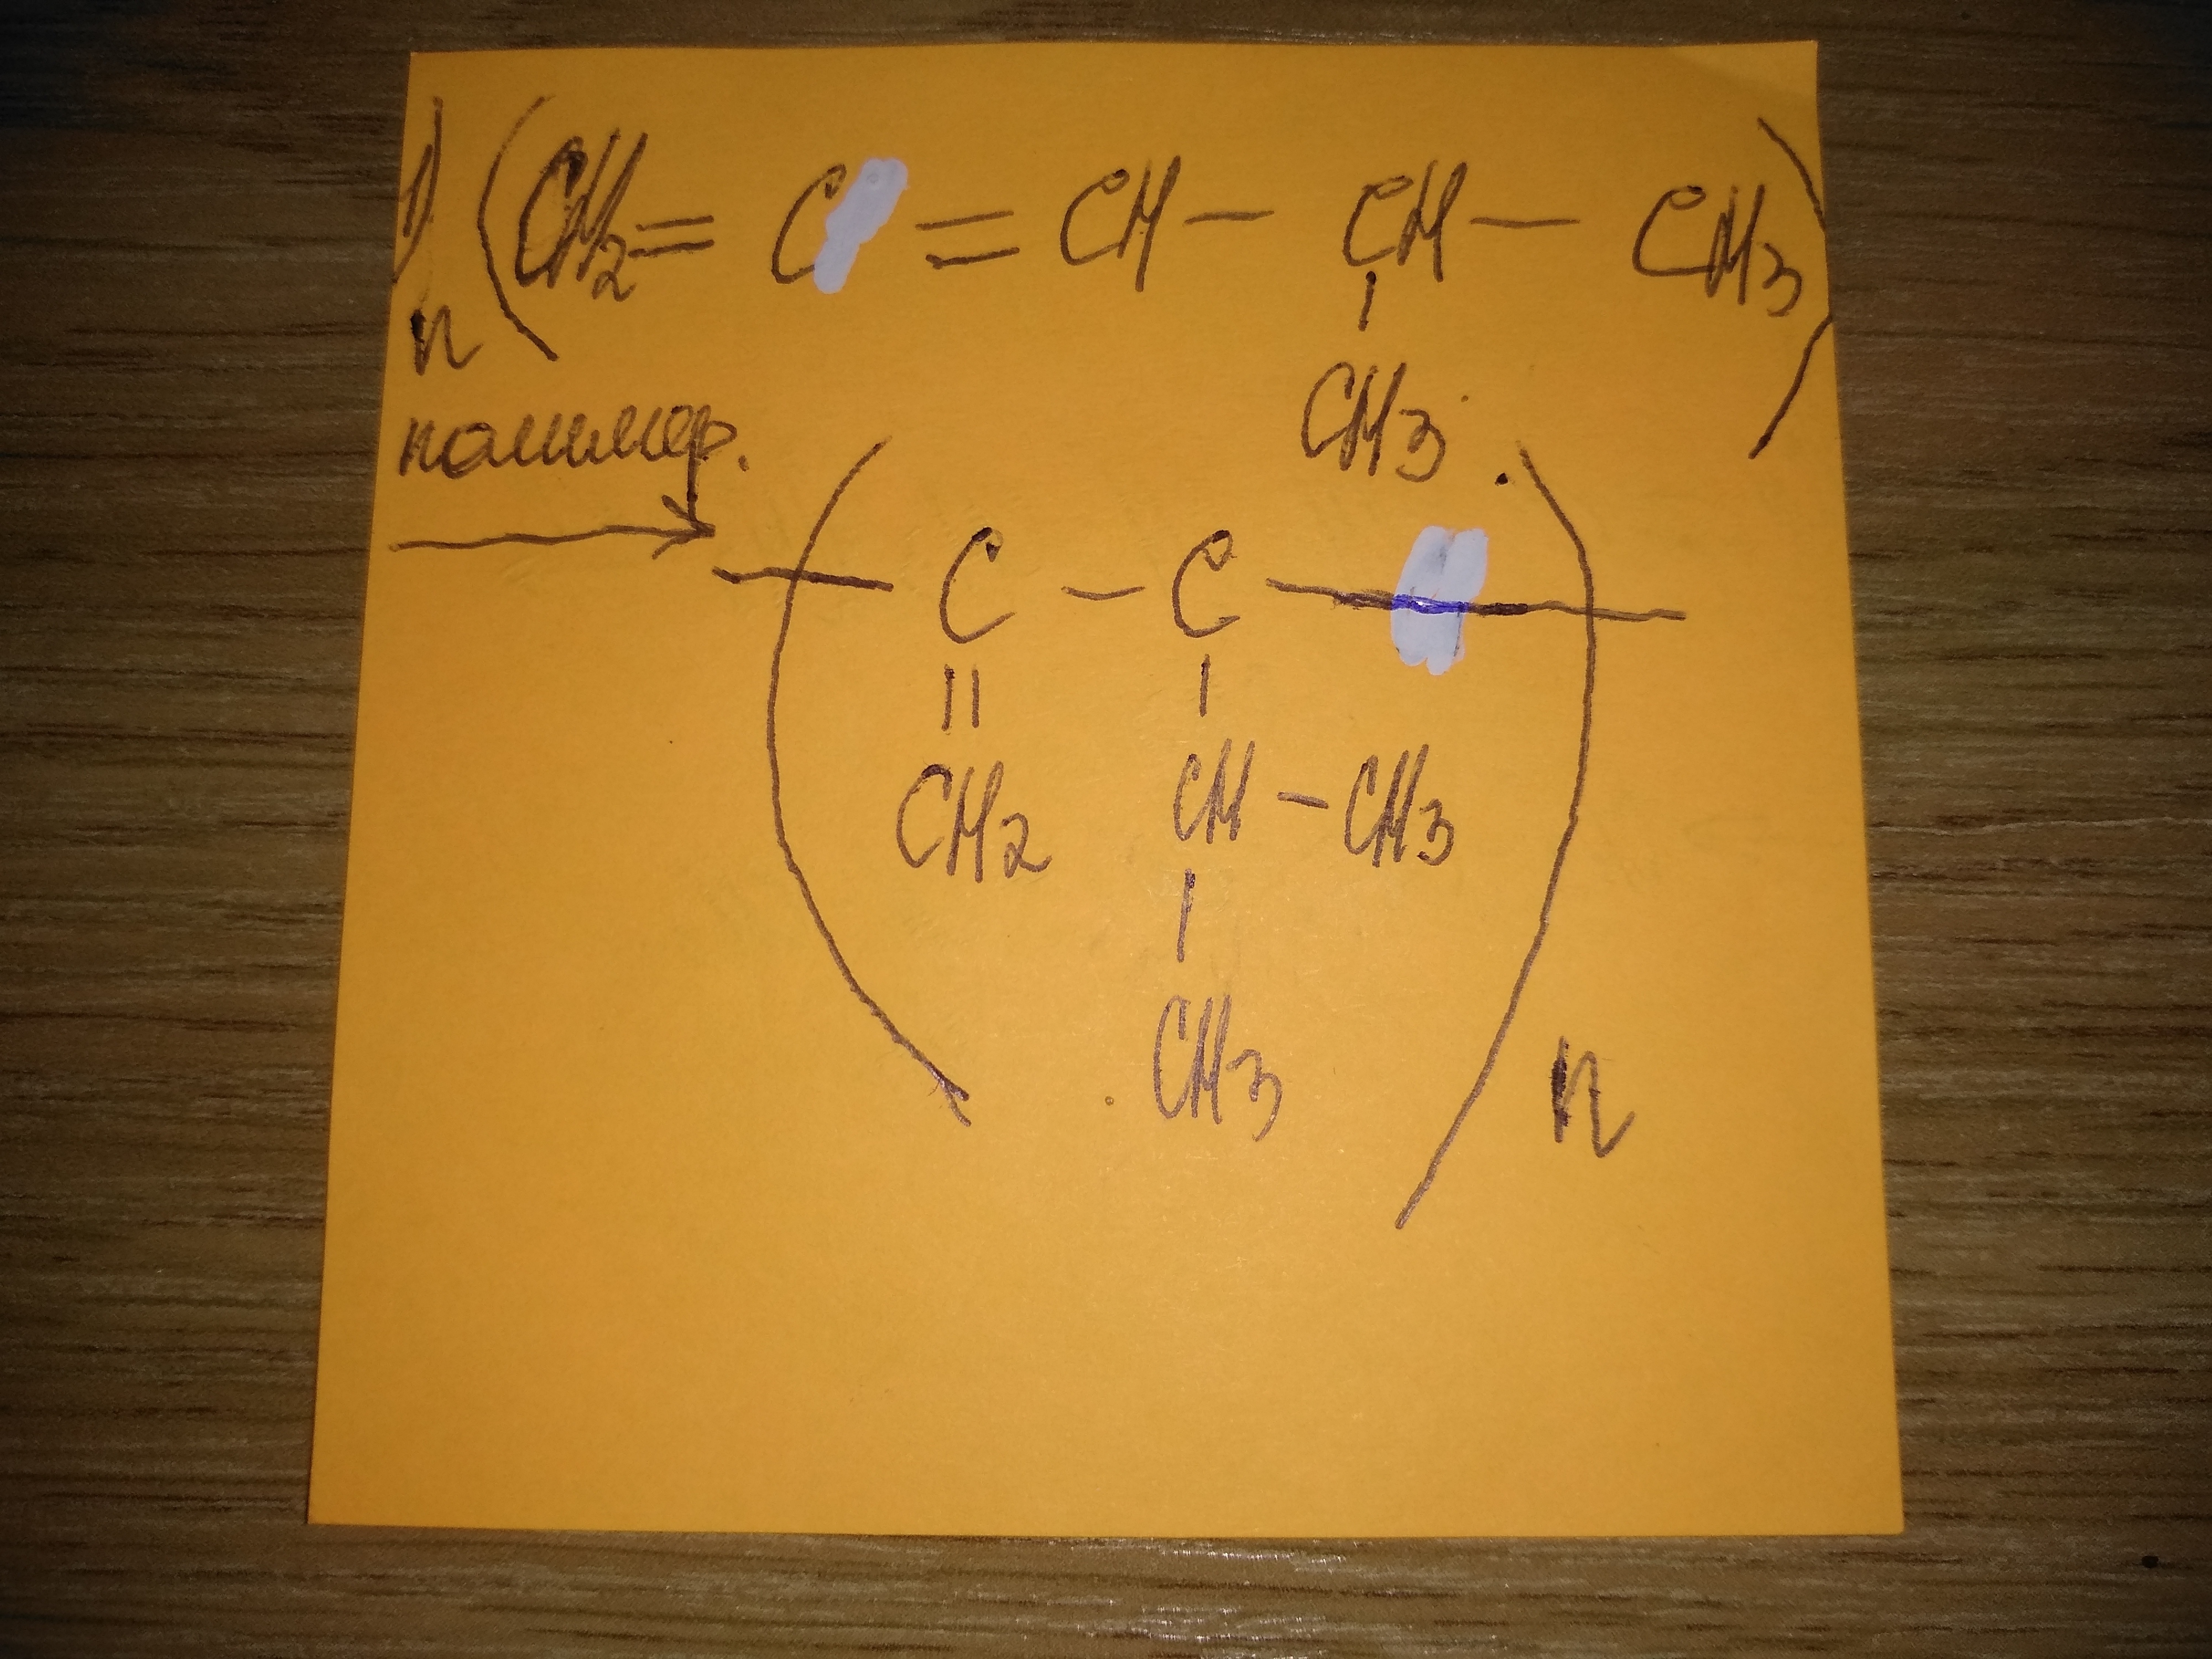 1) n (CH2 = C = CH - CH - CH3)
CH3
полимер.
→
( - C - C - )n
CH2 CH - CH3
CH3